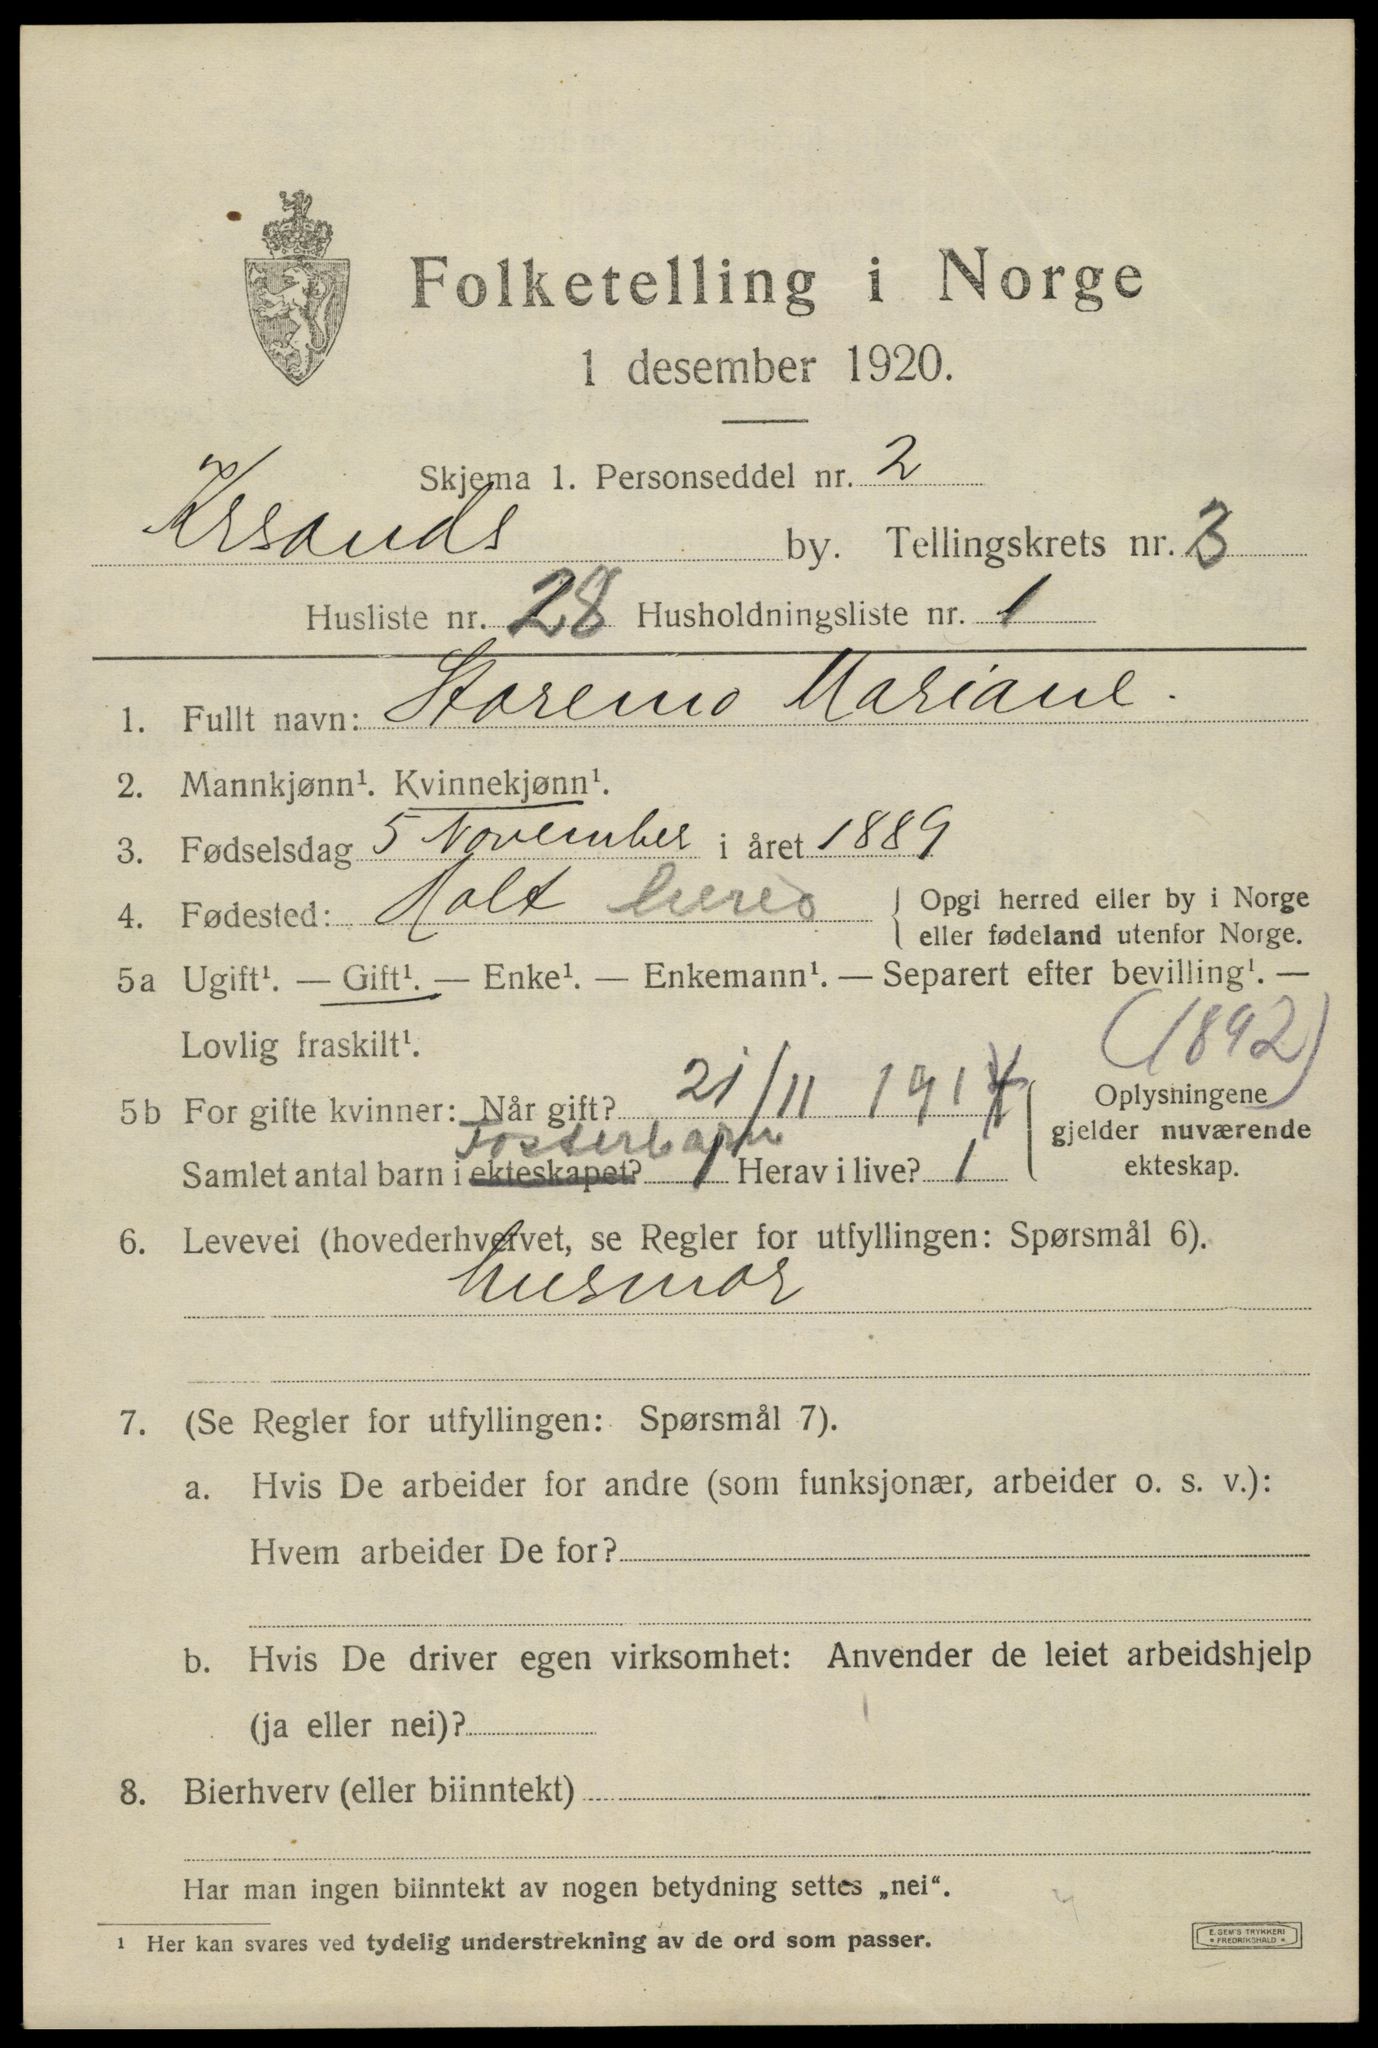 Folketelling i Norge
1 desember 1920.
Skjema 1. Personseddel nr. 2
Krsands by. Tellingskrets nr. 3
Husliste nr. 28 Husholdningsliste nr. 1
1. Fullt navn: Staremo Mariane.
2. Mannkjønn¹. Kvinnekjønn¹.
3. Fødselsdag 5 November i året 1889
4. Fødested: Holt herred { Opgi herred eller by i Norge
eller fødeland utenfor Norge.
5a Ugift¹. — Gift¹. — Enke¹. — Enkemann¹. — Separert efter bevilling¹. —
Lovlig fraskilt¹.
(1892)
5b For gifte kvinner: Når gift? 21/11 1914 { Oplysningene
gjelder nuværende
ekteskap.
Fosterbarn
Samlet antal barn i ekteskapet? 1 Herav i live? 1
6. Levevei (hovederhvervet, se Regler for utfyllingen: Spørsmål 6).
husmor
7. (Se Regler for utfyllingen: Spørsmål 7).
a. Hvis De arbeider for andre (som funksjonær, arbeider o. s. v.):
Hvem arbeider De for?
b. Hvis De driver egen virksomhet: Anvender de leiet arbeidshjelp
(ja eller nei)?
8. Bierhverv (eller biinntekt)
Har man ingen biinntekt av nogen betydning settes „nei“.
¹ Her kan svares ved tydelig understrekning av de ord som passer.
E. SEM'S TRYKKERI
* FREDRIKSHALD *